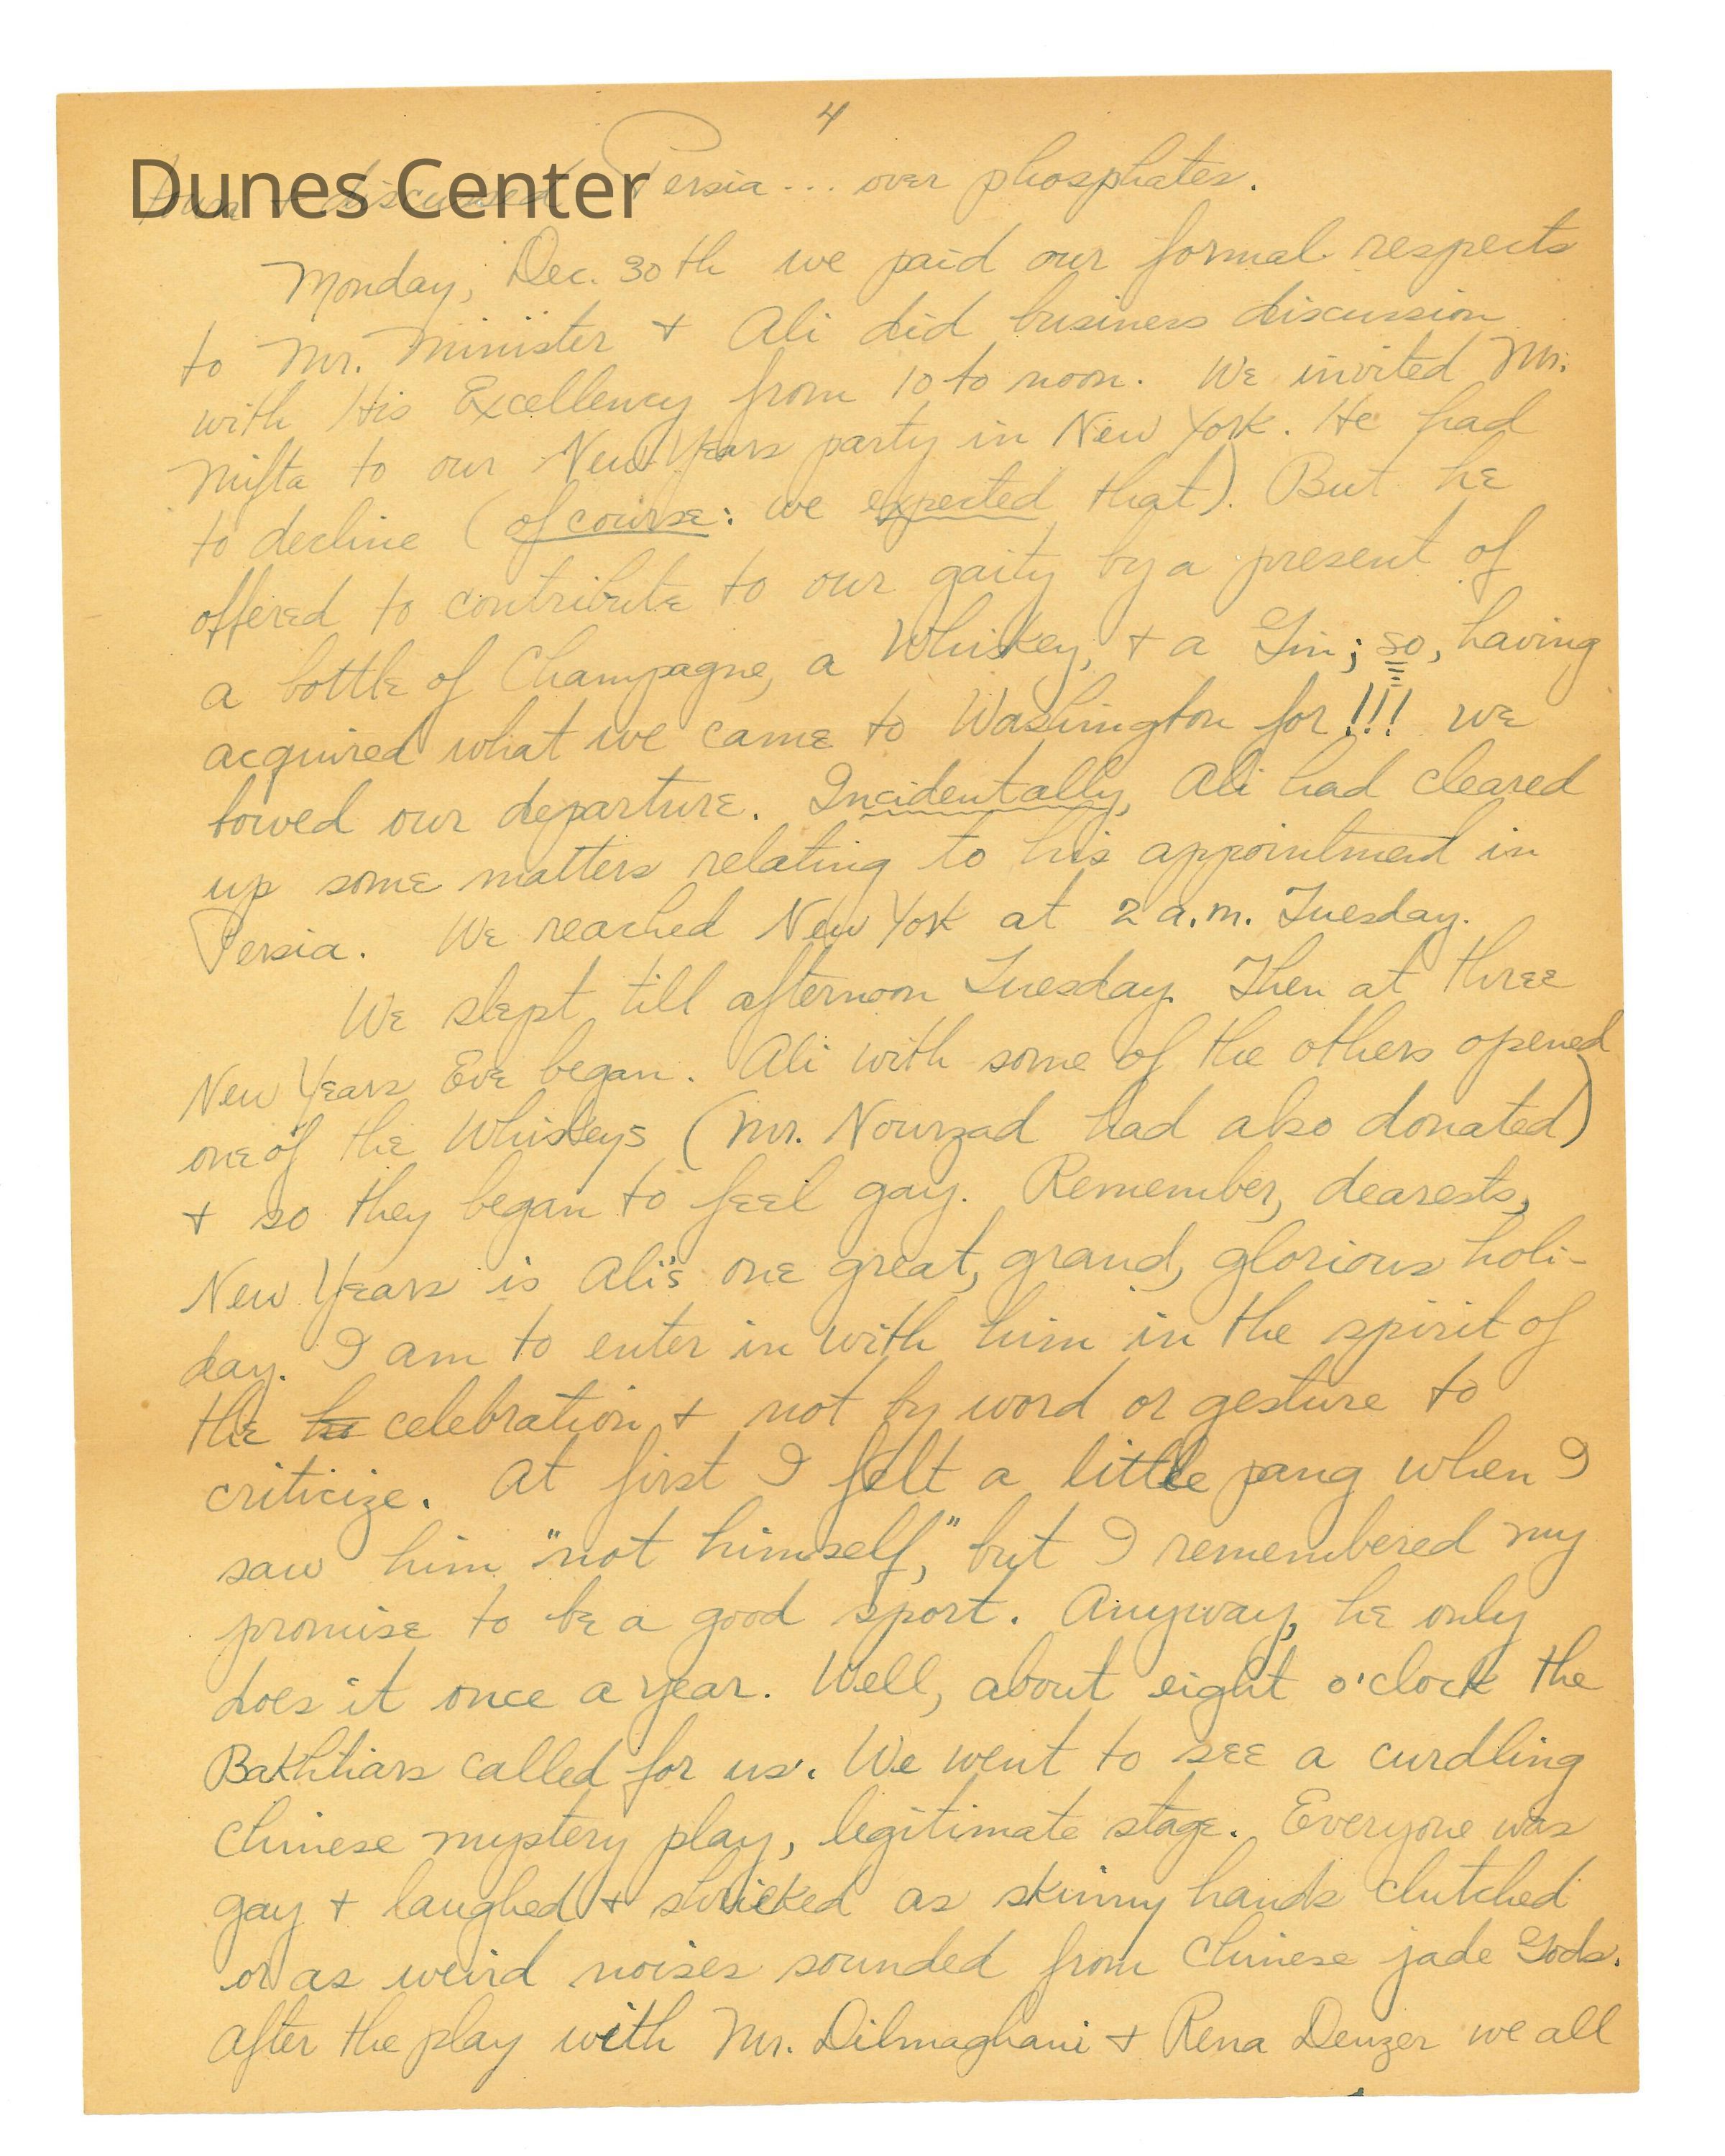 4
Dunes Center
+ discussed Persia... over phosphates.
Monday, Dec. 30th we paid our formal respects
to Mr. Minister + Ali did business discussion
with His Excellency from 10 to noon. We invited Mr.
Mifta to our New Years party in New York. He had
to decline (of course: we expected that). But he
offered to contribute to our gaity by a present of
a bottle of Champagne, a Whiskey, + a Gin; so, having
acquired what we came to Washington for!!! we
bowed our departure. Incidentally, Ali had cleared
up some matters relating to his appointment in
Persia. We reached New York at 2 a.m. Tuesday.
We slept till afternoon Tuesday. Then at three
New Years Eve began. Ali with some of the others opened
one of the Whiskeys (Mr. Nourzad had also donated)
+ so they began to feel gay. Remember, dearests,
New Years is Ali's one great, grand, glorious holi-
day. I am to enter in with him in the spirit of
the ha celebration + not by word or gesture to
criticize. At first I felt a little pang when I
saw him "not himself," but I remembered my
promise to be a good sport. Anyway, he only
does it once a year. Well, about eight o'clock the
Bakhtiars called for us. We went to see a curdling
Chinese mystery play, legitimate stage. Everyone was
gay + laughed + shrieked as skinny hands clutched
or as weird noises sounded from Chinese jade Gods.
After the play with Mr. Dilmaghani + Rena Denzer we all